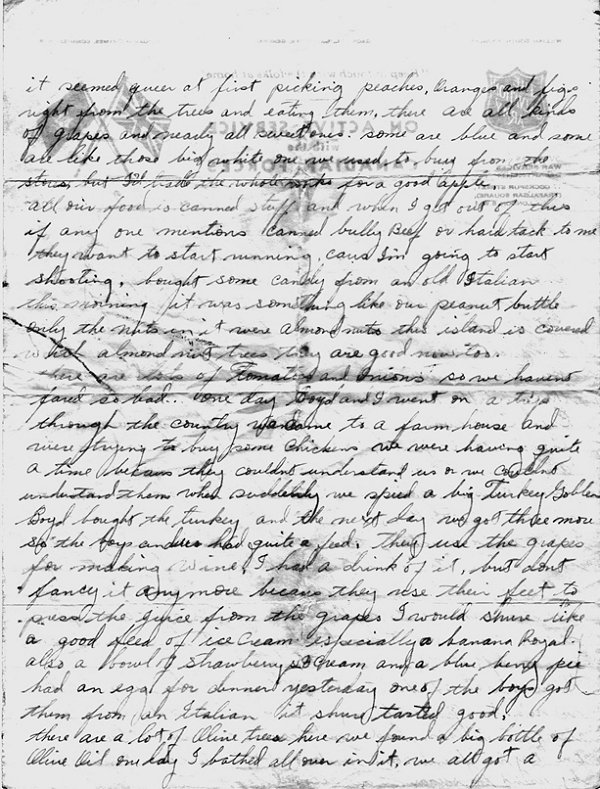 it seemed queer at first picking peaches, Oranges and figs
right from the trees and eating them. there are all kinds
of grapes and nearly all sweet ones. some are blue and some
are like those big white one we used to buy from the
stores, but I'd trade the whole for a good apple.
all our food is canned stuff and when I get out of this
if any one mentions canned bully Beef or hard tack to me
they want to start running. caus I'm going to start
shooting. bought some candy from an old Italian
this morning it was something like our peanut brittle
only the nuts in it were almond nuts this island is covered
with almond nut trees they are good now too.
there are lots of Tomatoes and onions so we havent
fared so bad.. one day Boyd and I went on a trip
through the country came to a farm house and
were trying to buy some chickens we were having quite
a time becaus they couldnt understand us or we couldnt
understand them when suddenly we spied a big Turkey Gobler
Boyd bought the turkey and the next day we got three more
so the boys and us had quite a feed. They use the grapes
for making wine, I had a drink of it, but dont
fancy it anymore becaus they use their feet to
press the juice from the grapes I would shure like
a good feed of ice Cream especially a banana Royal.
also a bowl of strawberrys & cream and a blue berry pie
had an egg for dinner yesterday one of the boys got
them from an Italian it shure tasted good.
there are a lot of Olive trees here we found a big bottle of
Olive Oil one day I bathed all over in it, we all got a
ON ACTIVE SERVICE
with the
CANADIAN FORCE